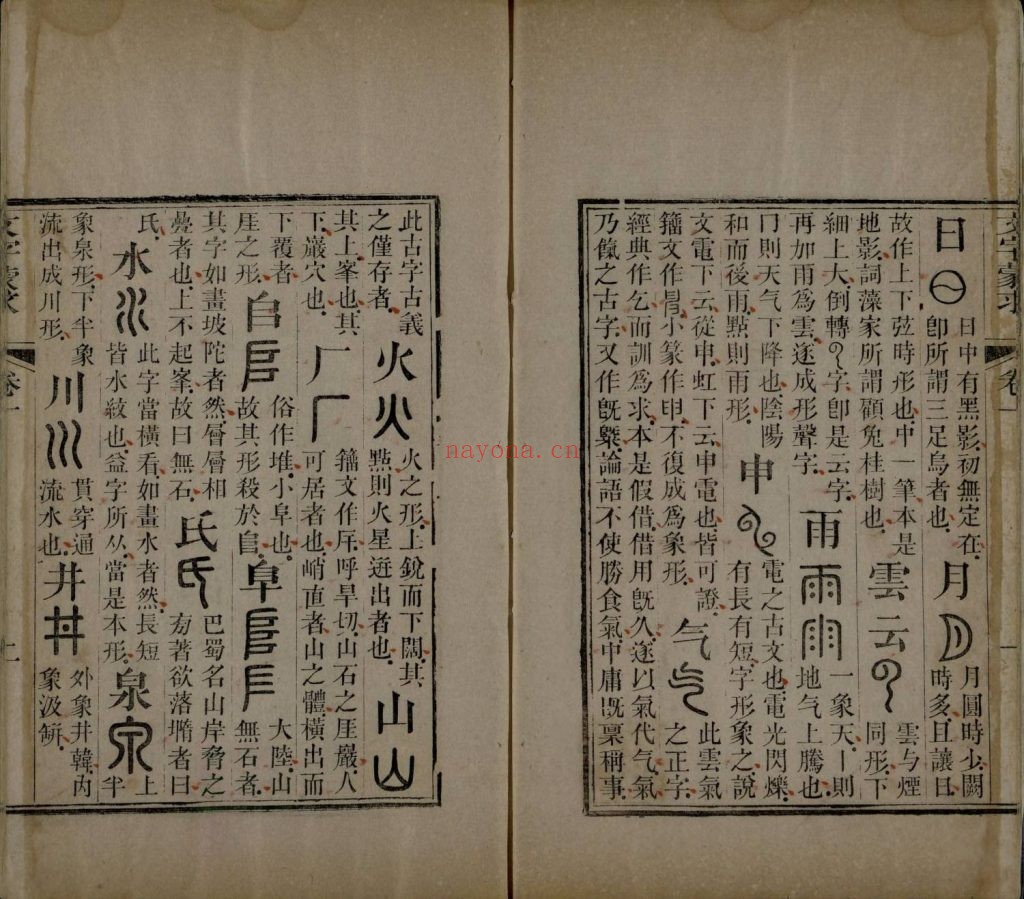 文字蒙求
卷一
一
日
日中有黑影初無定在
卽所謂三足烏者也
月
月圓時少闕
時多且讓日
故作上下弦時形也中一筆本是
地影詞藻家所謂顧兔桂樹也
雲云
雲与煙
同形下
細上大倒轉字卽是云字
再加雨爲雲遂成形聲字
雨
一象天丨則
地气上騰也
冂則天气下降也陰陽
和而後雨點則雨形
申
電之古文也電光閃爍
有長有短字形象之說
文電下云從申虹下云申電也皆可證
籒文作小篆作申不復成爲象形
气
此雲氣
之正字
經典作乞而訓爲求本是假借借用旣久遂以氣代气氣
乃餼之古字又作旣論語不使勝食氣中庸旣稟稱事
此古字古義
之僅存者
火
火之形上銳而下闊其
點則火星迸出者也
山
其上峯也其
下巖穴也
厂
籒文作厈呼旱切山石之厓巖人
可居者也峭直者山之體橫出而
下覆者
厓之形
𠂤
俗作堆小阜也
故其形殺於𨸏
阜
大陸山
無石者
其字如畫坡陀者然層層相
疊者也上不起峯故曰無石
氏
巴蜀名山岸脅之
㫄著欲落者曰
氏
水
此字當橫看如畫水者然長短
皆水紋也益字所从當是本形
泉
上
半
象泉形下半象
流出成川形
川
貫穿通
流水也
井
外象井韓內
象汲缾
文字蒙求
卷一
nayona.cn